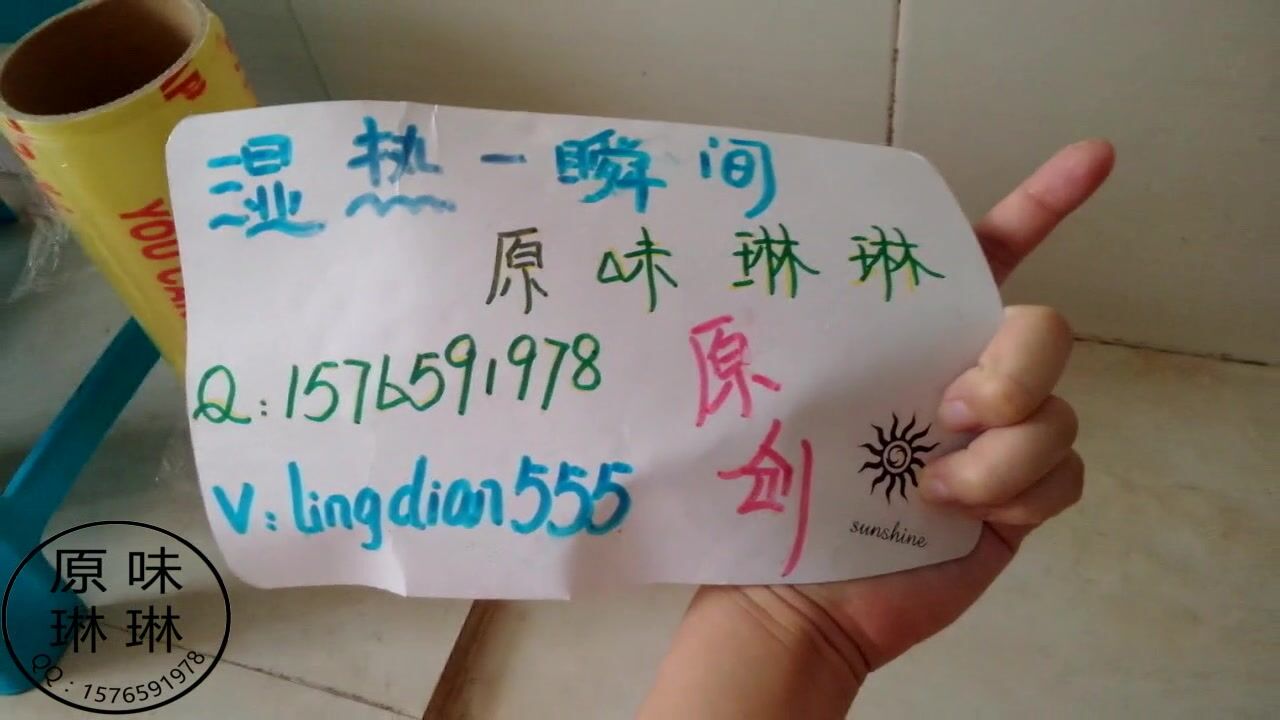 湿热一瞬间
原味琳琳
Q:1576591978
原创
V:lingdian555
sunshine
YOU CAN
原味
琳琳
QQ:1576591978